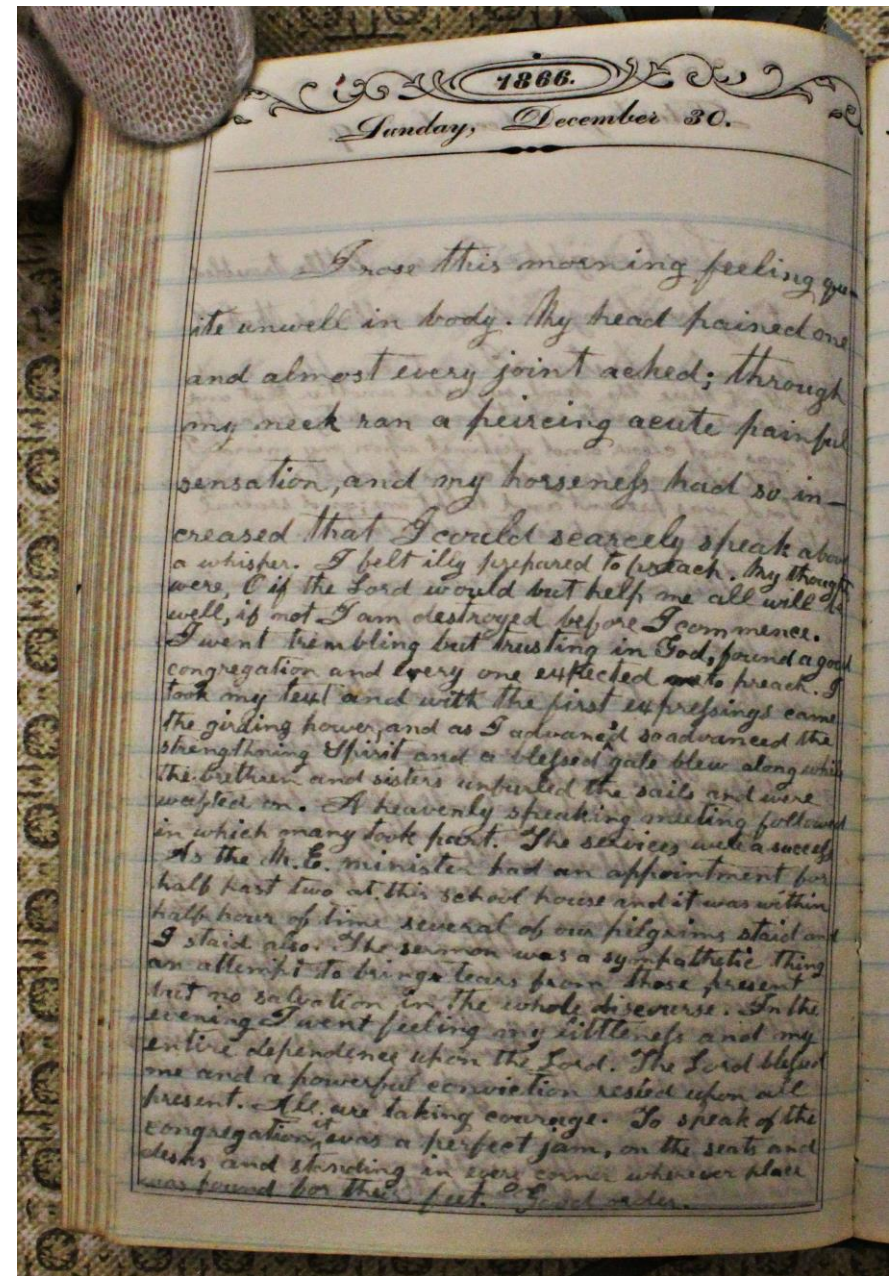 1866.
Sunday, December 30.
I rose this morning feeling qu-
ite unwell in body. My head pained one
and almost every joint acked; through
my neck ran a peircing acute painful
sensation, and my horseness had so in-
creased that I could scarcely speak above
a whisper. I felt illy prepared to preach. My thoughts
were, O if the Lord would but help me all will be
well, if not I am destroyed before I commence.
I went trembling but trusting in God, found a good
congregation and every one expected me to preach. I
took my text and with the first expressings came
the girding power, and as I advanc'd so advanced the
strengthning Spirit and a blessed gale blew along while
the brethren and sisters unfurled the sails and were
wafted on. A heavenly speaking meeting followed
in which many took part. The services were a success
As the M. E. minister had an appointment for
half past two at this school house and it was within
half hour of time several of our pilgrims staid and
I staid also. The sermon was a sympathetic thing
an attempt to bring tears from those present
but no salvation in the whole discourse. In the
evening I went feeling my littleness and my
entire dependence upon the Lord. The Lord blessed
me and a powerful conviction rested upon all
present. All are taking courage. To speak of the
congregation, it was a perfect jam, on the seats and
desks and standing in every corner wherever place
was found for their feet. Good order.